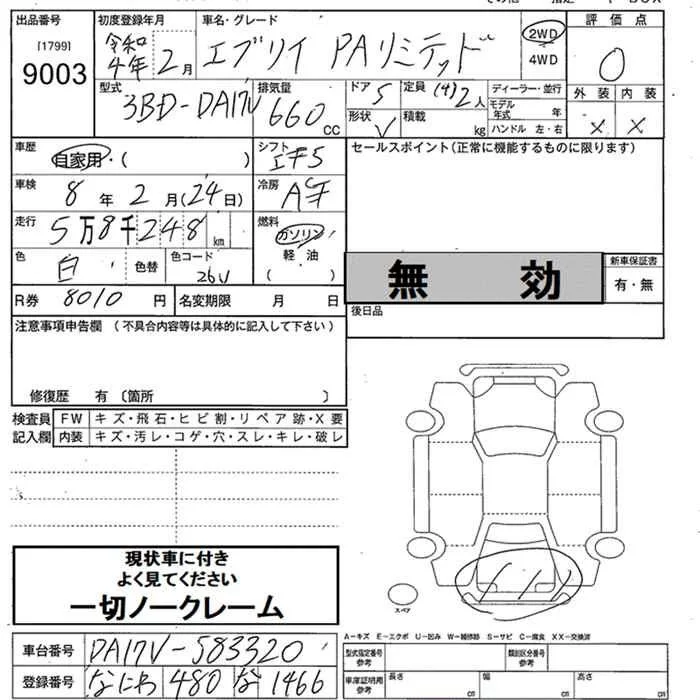 出品番号 初度登録年月 車名・グレード 評価点
[1799] 令和 エブリイ PAリミテッド 2WD
9003 4年 2月 4WD 0
型式 排気量 ドア 5 定員 (4)2人 ディーラー・並行 外装 内装
3BD-DA17V 660 CC 形状 V 積載 kg モデル年式 年 × ×
ハンドル 左・右
車歴 自家用・( ) シフト セールスポイント(正常に機能するものに限ります)
車検 8年 2月(24日) 冷房 AC
走行 5万8千248km 燃料 ガソリン
色 白 色替 色コード 26U 軽油 ( ) 無効 新車保証書
有・無
R券 8010円 名変期限 月 日 後日品
注意事項申告欄 (不具合内容等は具体的に記入して下さい)
修復歴 有〔箇所 〕
検査員 FW キズ・飛石・ヒビ割・リペア跡・X要
記入欄 内装 キズ・汚レ・コゲ・穴・スレ・キレ・破レ
現状車に付き
よく見てください
一切ノークレーム
スペア
A-キズ E-エクボ U-凹み W-補修跡 S-サビ C-腐食 XX-交換済
車台番号 DA17V-583320 型式指定番号 参考 類別区分番号 参考
登録番号 なにわ 480 な 1466 車庫証明用 参考 長さ cm 幅 cm 高さ cm